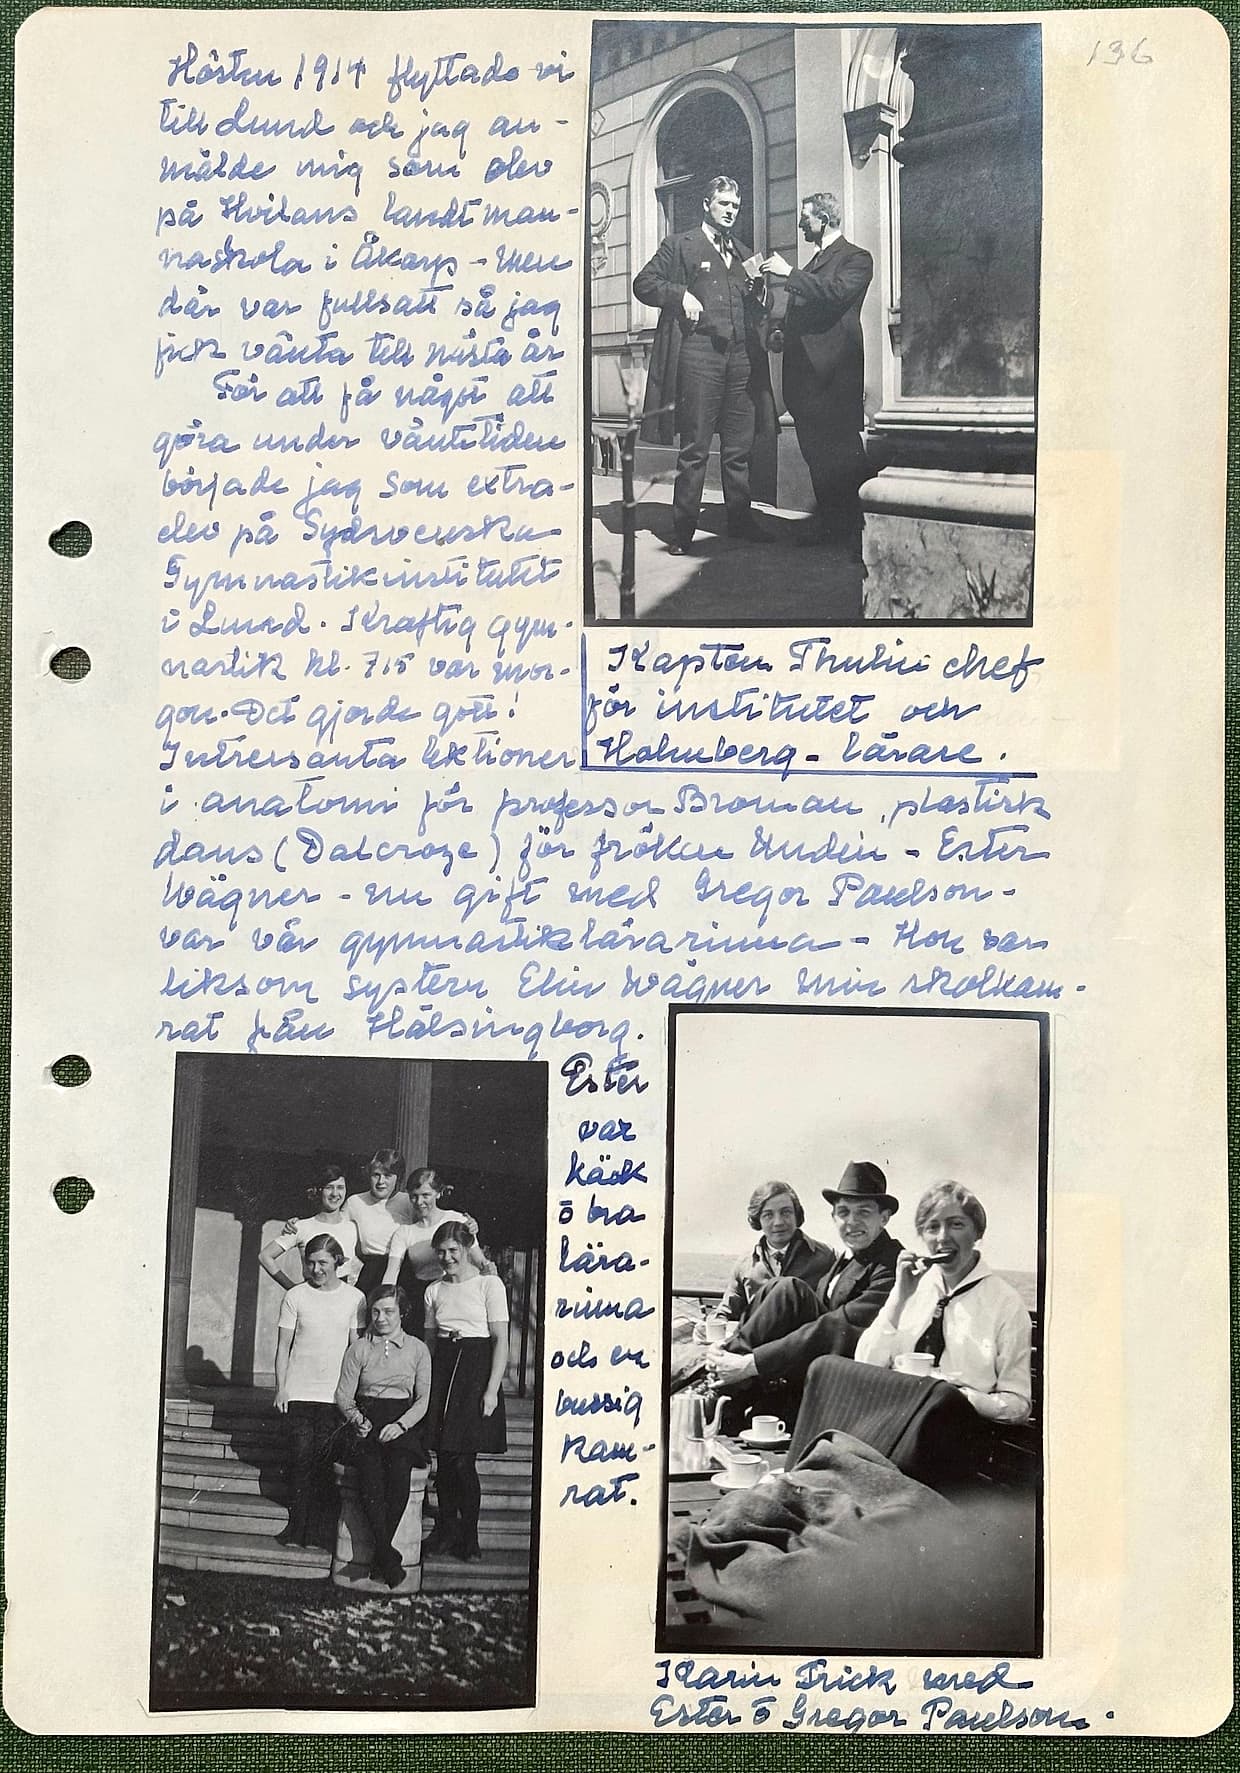 136
Hösten 1914 flyttade vi
till Lund och jag an-
mälde mig som elev
på Hvilans landtman-
naskola i Åkarp - men
där var fullsatt så jag
fick vänta till nästa år
För att få något att
göra under väntetiden
började jag som extra-
elev på Sydsvenska
Gymnastikinstitutet
i Lund. Kraftig gym-
nastik kl. 7.15 var mor-
gon. Det gjorde gott!
Intressanta lektioner
i anatomi för professor Broman, plastisk
dans (Dalcroze) för fröken Undin - Ester
Wägner - nu gift med Gregor Paulson -
var vår gymnastiklärarinna - Hon var
liksom systern Elin Wägner min skolkam-
rat från Hälsingborg.
Kapten Thulin chef
för institutet och
Holmberg - lärare.
Ester
var
käck
ō bra
lära-
rinna
och en
bussig
kam-
rat.
Karin Frick med
Ester ō Gregor Paulson.